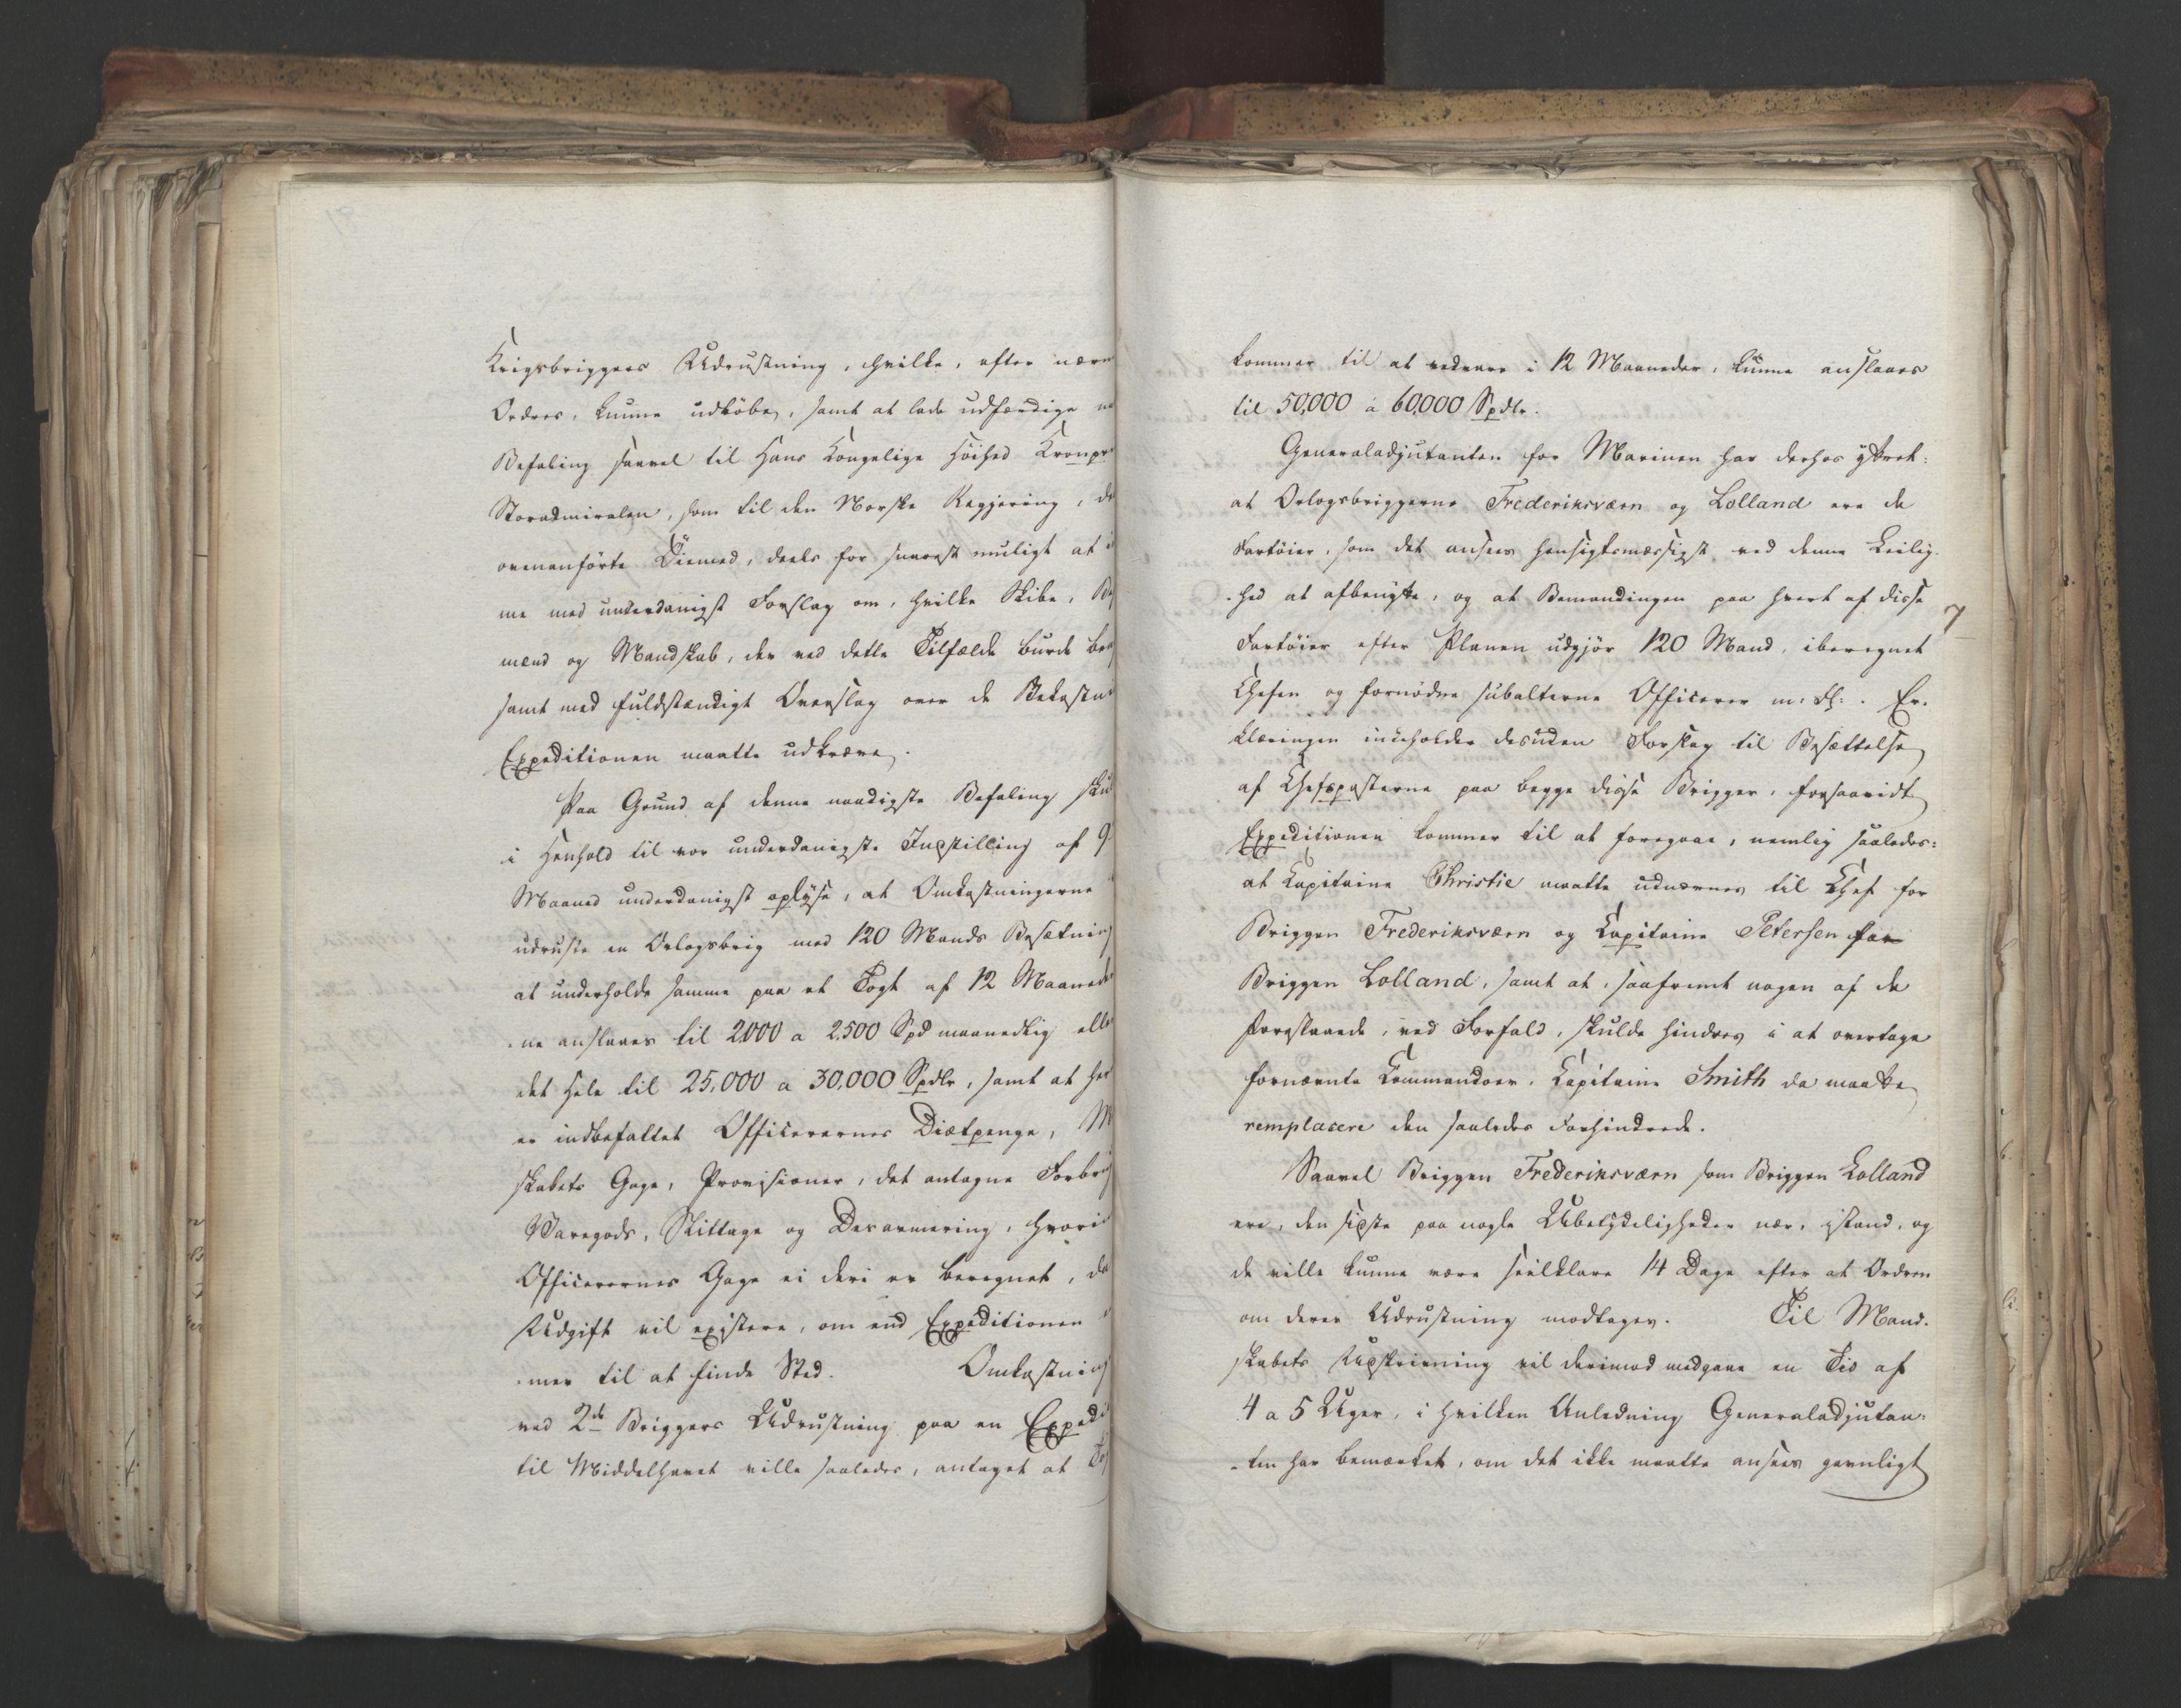 Krigsbriggers Udrustning, hvilke, efter nærm
Ordres, kunne udløbe, samt at lade udfærdige
Befaling saavel til Hans Kongelige Höihed Kronpr
Storadmiralen, som til den Norske Regjering, de
ovenanførte Öiemed, deels for snarest muligt at
me med underdanigst Forslag om, hvilke Skibe, Be
mænd og Mandskab, der ved dette Tilfælde burde bru
samt med fuldstændigt Overslag over de Bekostn
Expeditionen maatte udkræve.
Paa Grund af denne naadigste Befaling sku
i Henhold til vor underdanigste Indstilling af 9
Maaned underdanigst oplyse, at Omkostningerne
udruste en Orlogsbrig med 120 Mands Besætning
at underholde samme paa et Togt af 12 Maaneder
ne anslaaes til 2000 a 2,500 Spd maanedlig elle
det Hele til 25,000 a 30,000 Spdlr, samt at her
er indbefattet Officerernes Diætpenge, M
skabets Gage, Provisioner, det antagne Forbrug
Varegods, Slittage og Desarmering, hvori
Officerernes Gage ei deri er beregnet, da
Udgift vil existere, om end Expeditionen
mer til at finde Sted. Omkostning
ved 2de Briggers Udrustning paa en Expedi
til Middelhavet ville saaledes, antaget at To
kommer til at vedvare i 12 Maaneder, kunne anslaaes
til 50,000 à 60,000 Spdlr.
Generaladjutanten for Marinen har derhos yttret:
at Orlogsbriggerne Frederiksværn og Lolland ere de
Fartöier, som det ansees hensigtsmæssigst ved denne Leilig-
hed at afbenytte, og at Bemandingen paa hvert af disse
7
Fartöier efter Planen udgjör 120 Mand, iberegnet
Chefen og fornödne subalterne Officerer m: fl: . Er-
klæringen indeholder desuden Forslag til Besættelse
af Chefsposterne paa begge disse Brigger, forsaavidt
Expeditionen kommer til at foregaae, nemlig saaledes:
at Capitaine Christie maatte udnævnes til Chef for
Briggen Frederiksværn og Capitaine Petersen for
Briggen Lolland, samt at, saafremt nogen af de
foreslaaede, ved Forfald, skulde hindres i at overtage
fornævnte Commandoer, Capitaine Smith da maatte
remplacere den saaledes Forhindrede.
Saavel Briggen Frederiksværn som Briggen Lolland
ere, den sidste paa nogle Ubetydeligheder nær, istand, og
de ville kunne være seilklare 14 Dage efter at Ordren
om deres Udrustning modtages. Til Mand-
skabets Udskrivning vil derimod medgaae en Tid af
4 a 5 Uger, i hvilken Anledning Generaladjutan-
ten har bemærket, om det ikke maatte ansees gavnligt